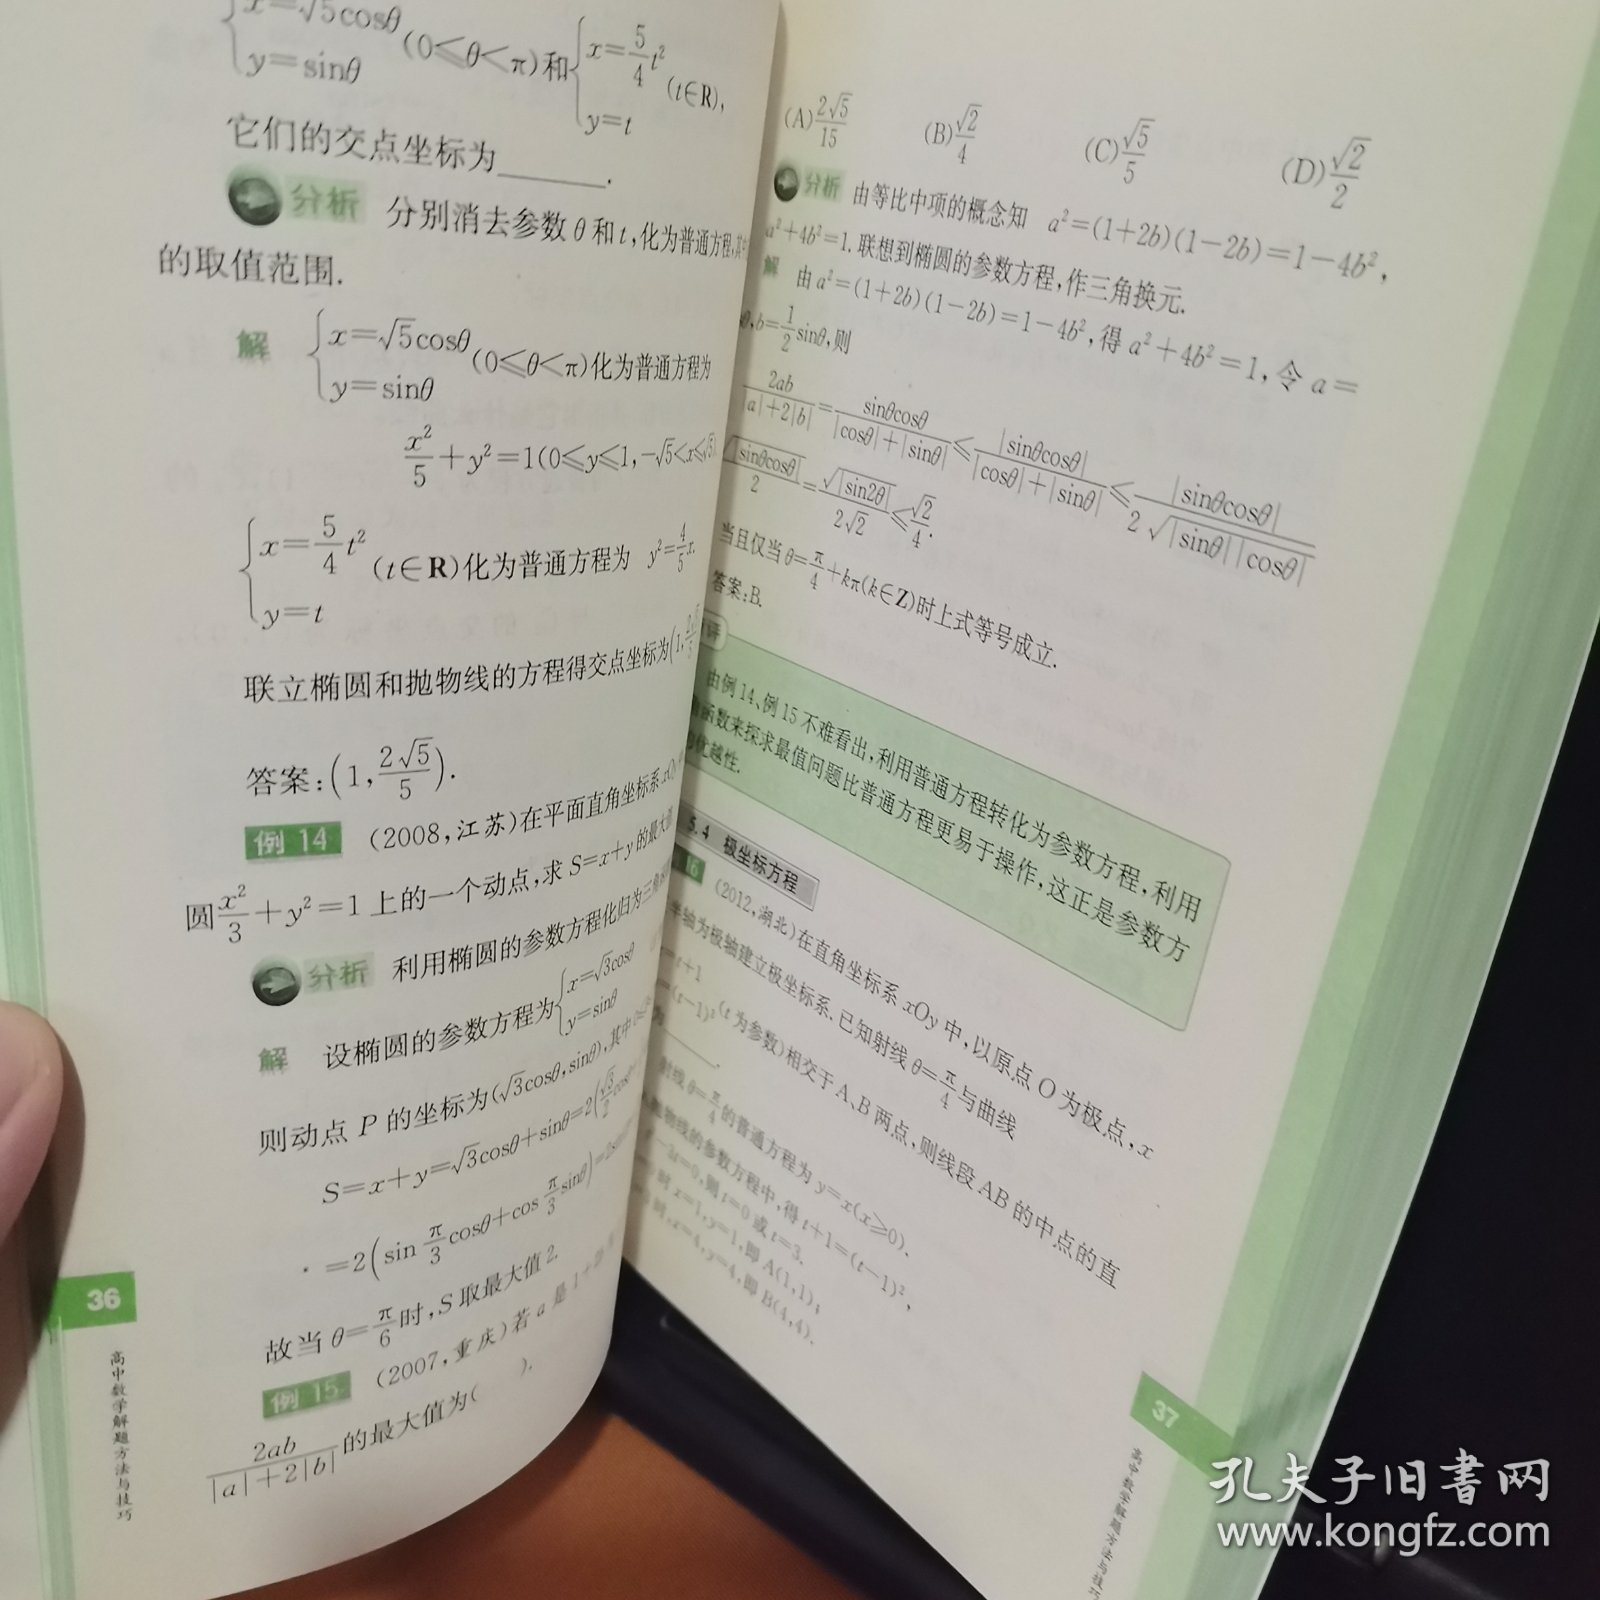 {x=√5cosθ
y=sinθ (0≤θ<π)和{x=5/4 t²
y=t (t∈R),
它们的交点坐标为______.
分析 分别消去参数θ和t,化为普通方程,
的取值范围.
解 {x=√5cosθ
y=sinθ (0≤θ<π)化为普通方程为
x²/5+y²=1(0≤y≤1,-√5<x≤√5).
{x=5/4 t²
y=t (t∈R)化为普通方程为 y²=4/5 x.
联立椭圆和抛物线的方程得交点坐标为(1,
答案:(1,2√5/5).
例14 (2008,江苏)在平面直角坐标系xOy
圆x²/3+y²=1上的一个动点,求S=x+y的最大
分析 利用椭圆的参数方程化归为三角
解 设椭圆的参数方程为{x=√3cosθ
y=sinθ
则动点P的坐标为(√3cosθ,sinθ),其中
S=x+y=√3cosθ+sinθ=2(√3/2 cosθ
=2(sin π/3 cosθ+cos π/3 sinθ)
故当θ=π/6时,S取最大值2.
例15 (2007,重庆)若a是1+2b
2ab/(|a|+2|b|)的最大值为( ).
36
高中数学解题方法与技巧
(A)2√5/15 (B)√2/4 (C)√5/5 (D)√2/2
分析 由等比中项的概念知 a²=(1+2b)(1-2b)=1-4b²,
a²+4b²=1.联想到椭圆的参数方程,作三角换元.
解 由a²=(1+2b)(1-2b)=1-4b²,得a²+4b²=1,令a=
θ,b=1/2 sinθ,则
2ab/(|a|+2|b|)=sinθcosθ/(|cosθ|+|sinθ|)≤|sinθcosθ|/(|cosθ|+|sinθ|)≤|sinθcosθ|/(2√(|sinθ||cosθ|))
√|sinθcosθ|/2=√|sin2θ|/(2√2)≤√2/4.
当且仅当θ=π/4+kπ(k∈Z)时上式等号成立.
答案:B.
评
由例14、例15不难看出,利用普通方程转化为参数方程,利用
函数来探求最值问题比普通方程更易于操作,这正是参数方
优越性.
5.4 极坐标方程
16 (2012,湖北)在直角坐标系xOy中,以原点O为极点,x
半轴为极轴建立极坐标系.已知射线θ=π/4与曲线
=t+1
=(t-1)² (t为参数)相交于A、B两点,则线段AB的中点的直
为______.
射线θ=π/4的普通方程为y=x(x≥0).
抛物线的参数方程中,得t+1=(t-1)²,
-3t=0,则t=0或t=3.
时x=1,y=1,即A(1,1);
时,x=4,y=4,即B(4,4).
37
高中数学解题方法与技巧
孔夫子旧书网
www.kongfz.com